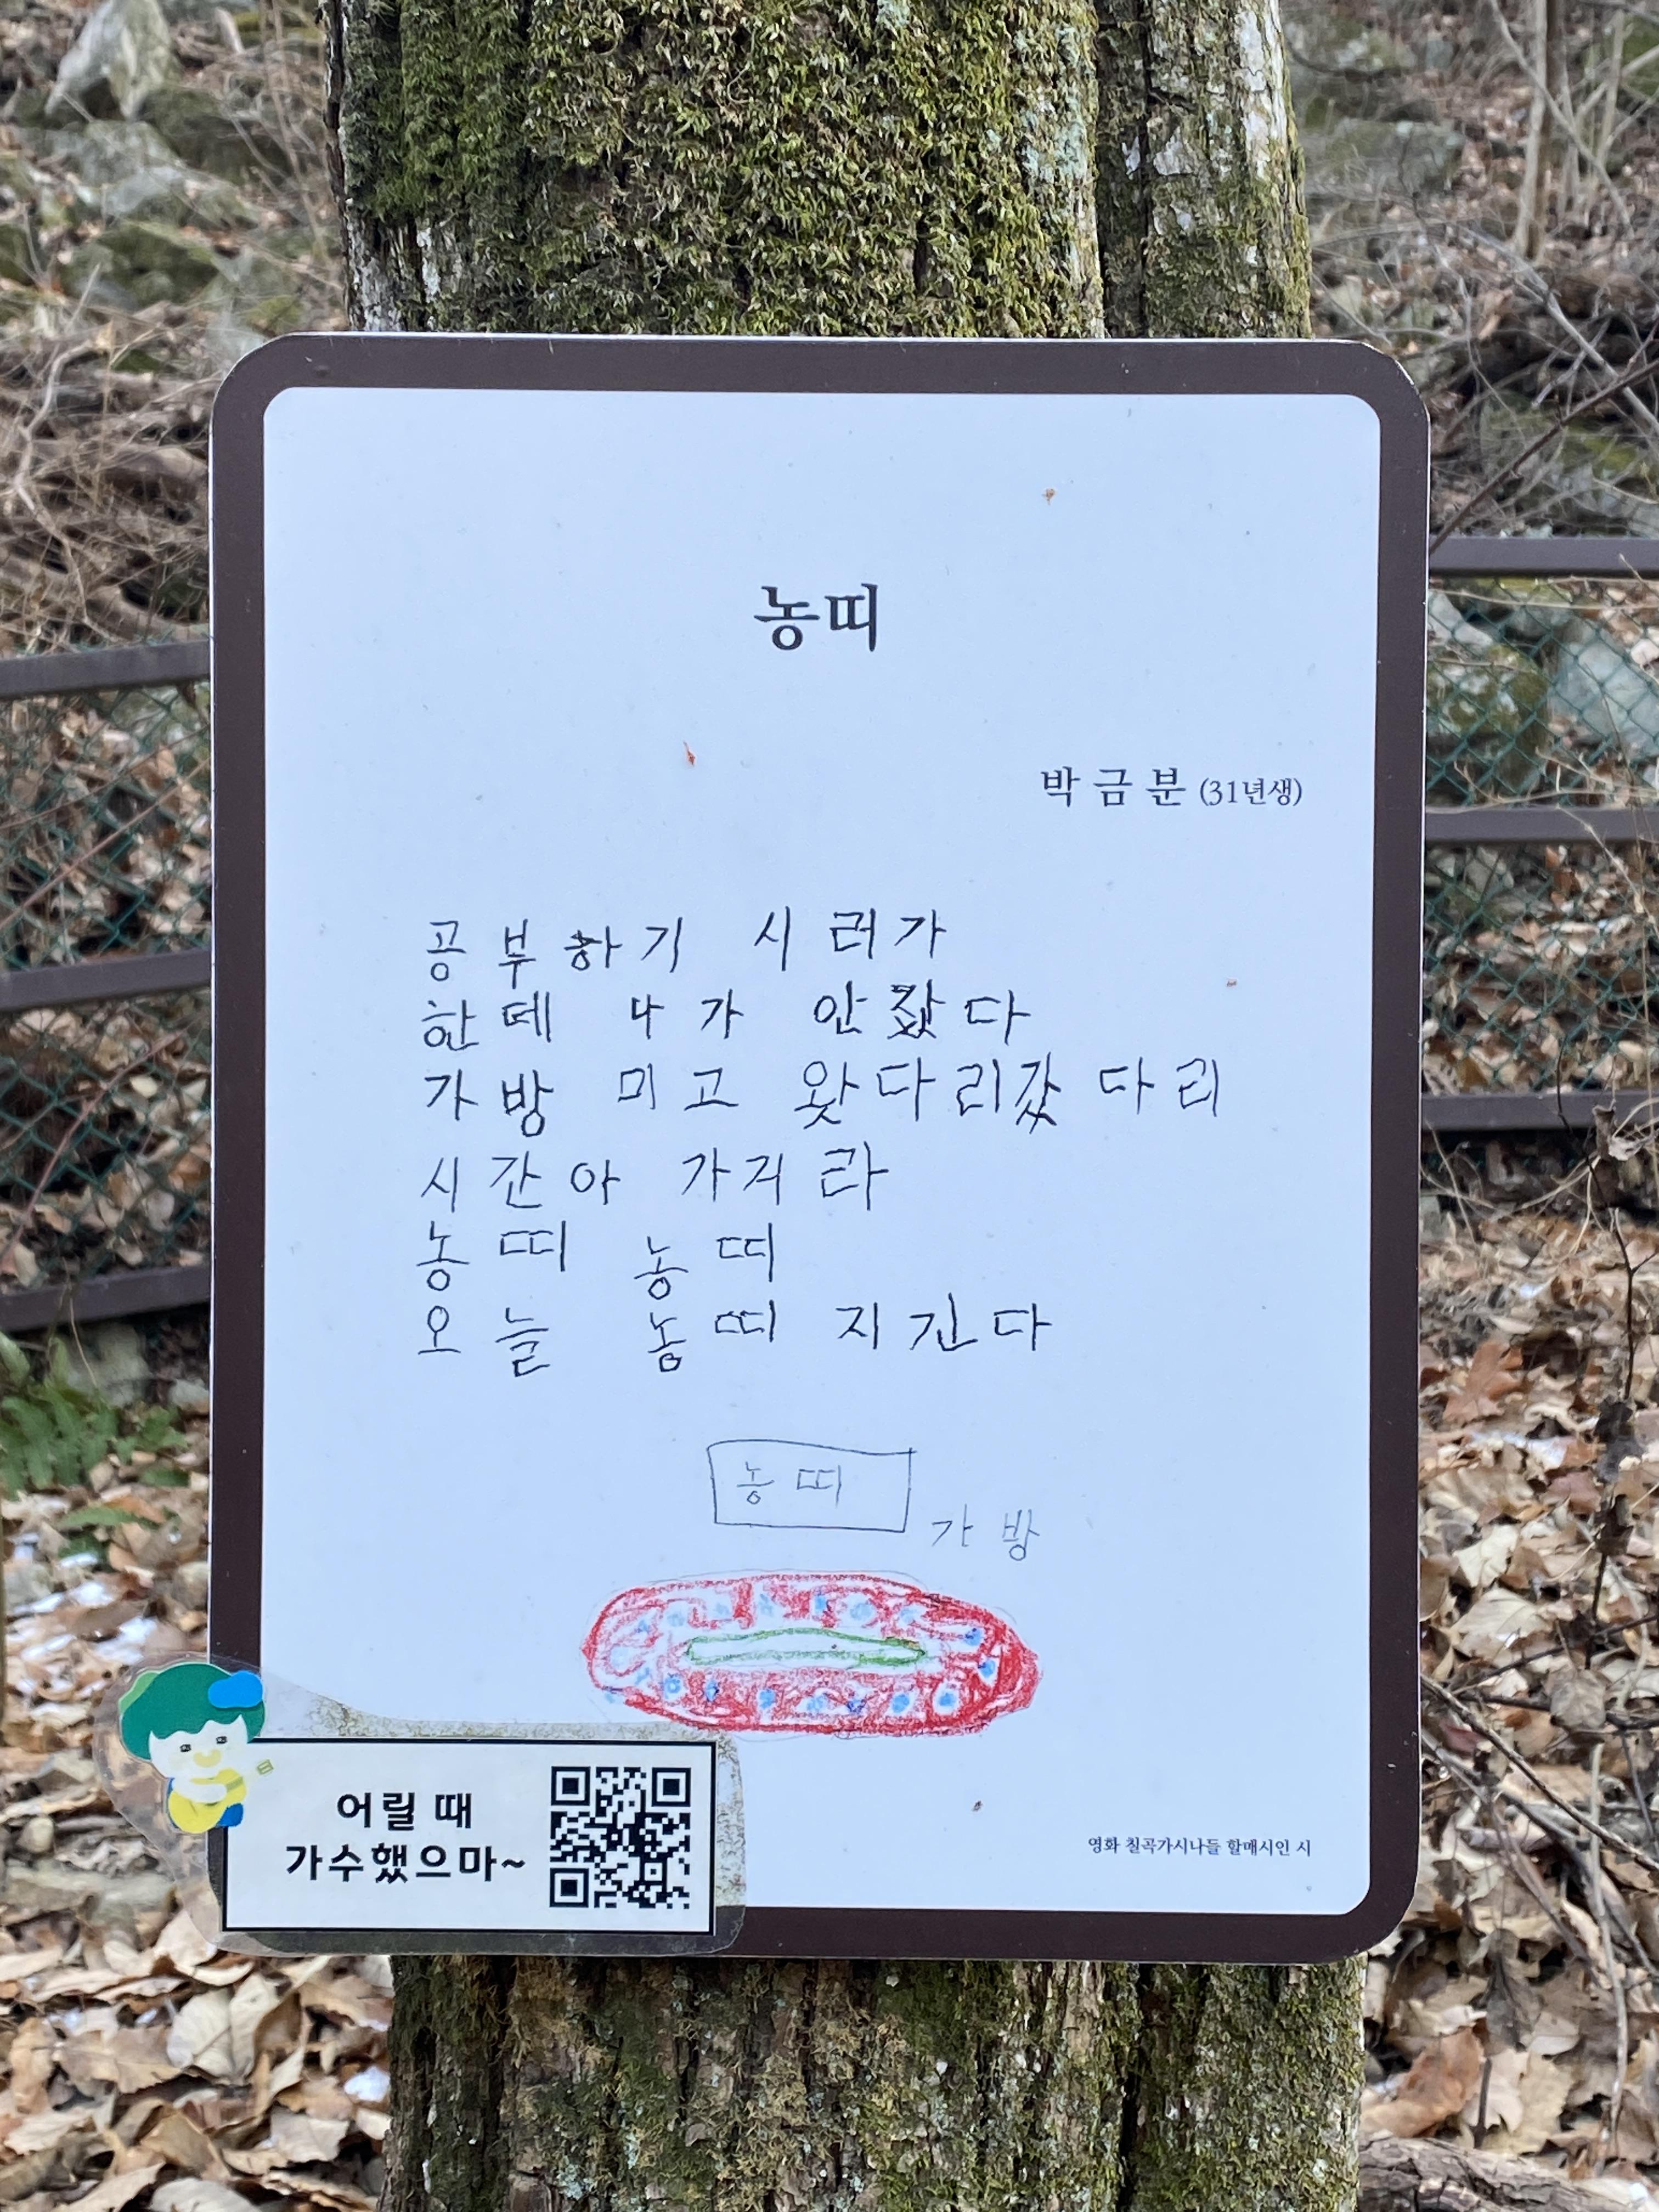 농띠
박금분 (31년생)
공부하기 시러가
한데 나가 안잤다
가방 미고 왓다리갔다리
시간아 가거라
농띠 농띠
오늘 농띠 지긴다
농띠
가방
어릴 때
가수했으마~
영화 칠곡가시나들 할매시인 시